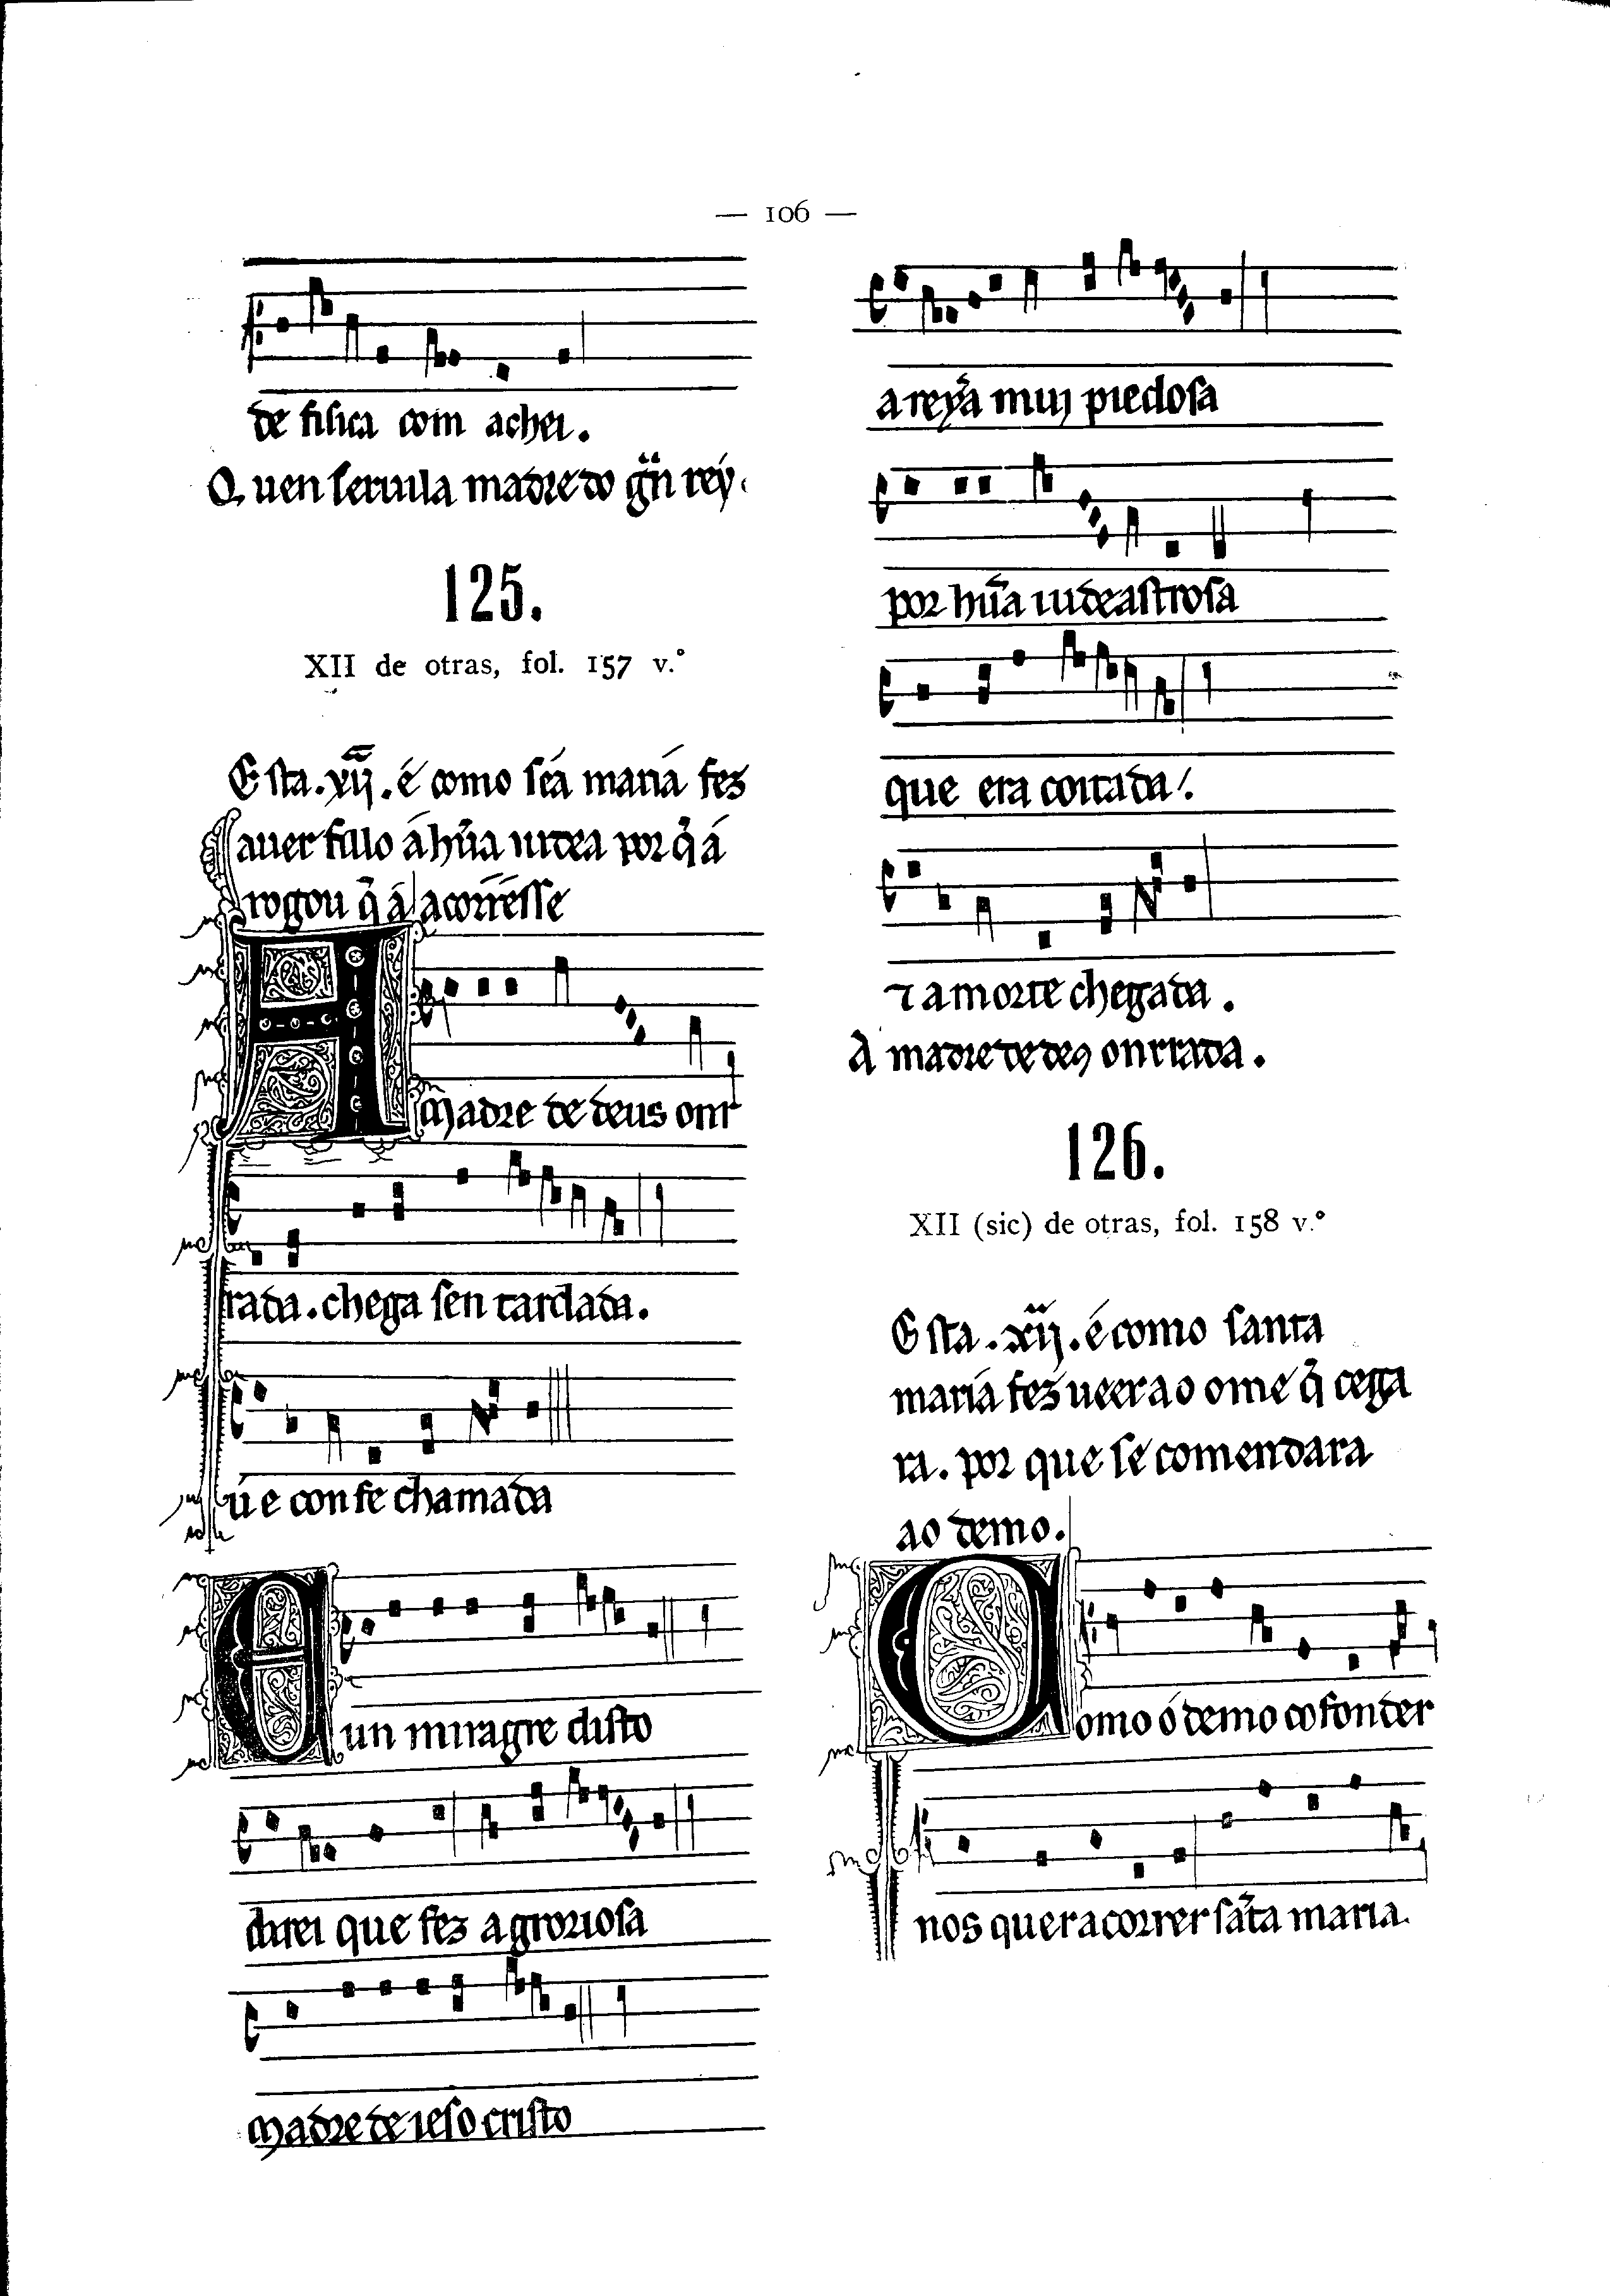 — 106 —
de fisica com achei.
Quen seruula madre do gň rey.
125.
XII de otras, fol. 157 v.º
Esta .xij. é como sēa maria fez
auer fillo á hũa iudea por q̃ á
rogou q̃ á acorresse
A
Madre de deus onr
rada. chega sen tardada.
úe con fe chamada
E
un miragre disto
direi que fez a groriosa
Madre de ieso cristo
a reỹa mui piedosa
por hũa iudeastrosa
que era coitada.
⁊ a morte chegada.
A madre de deꝯ onrrada.
126.
XII (sic) de otras, fol. 158 v.º
Esta .xij. é como santa
maria fez ueer ao ome q̃ cega
ra. por que se comendara
ao demo.
C
omo ó demo cofonder
nos quer acorrer sãta maria.